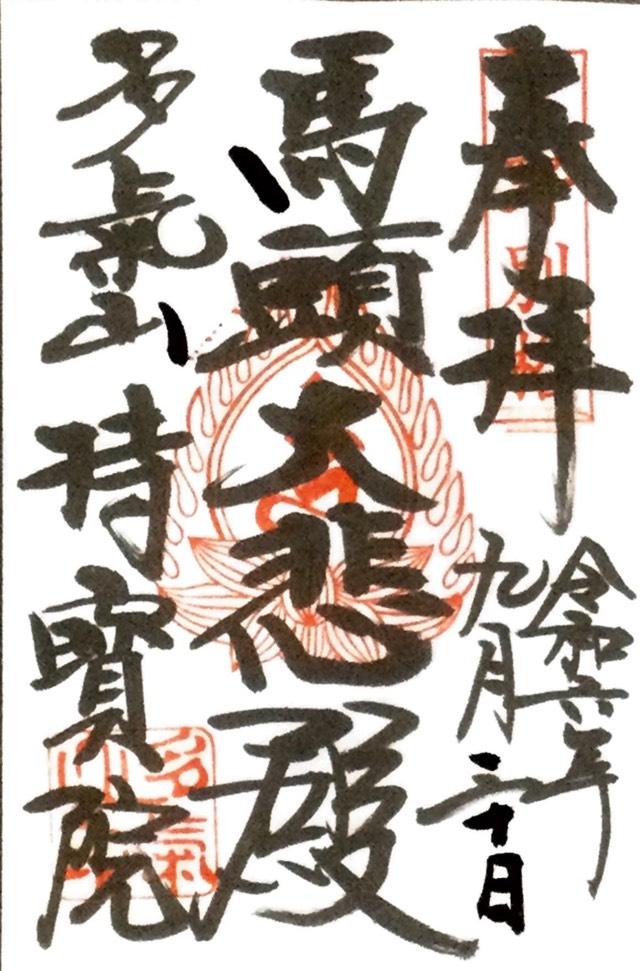 奉拝
令和六年
九月三十日
馬頭大悲殿
多氣山 持寶院